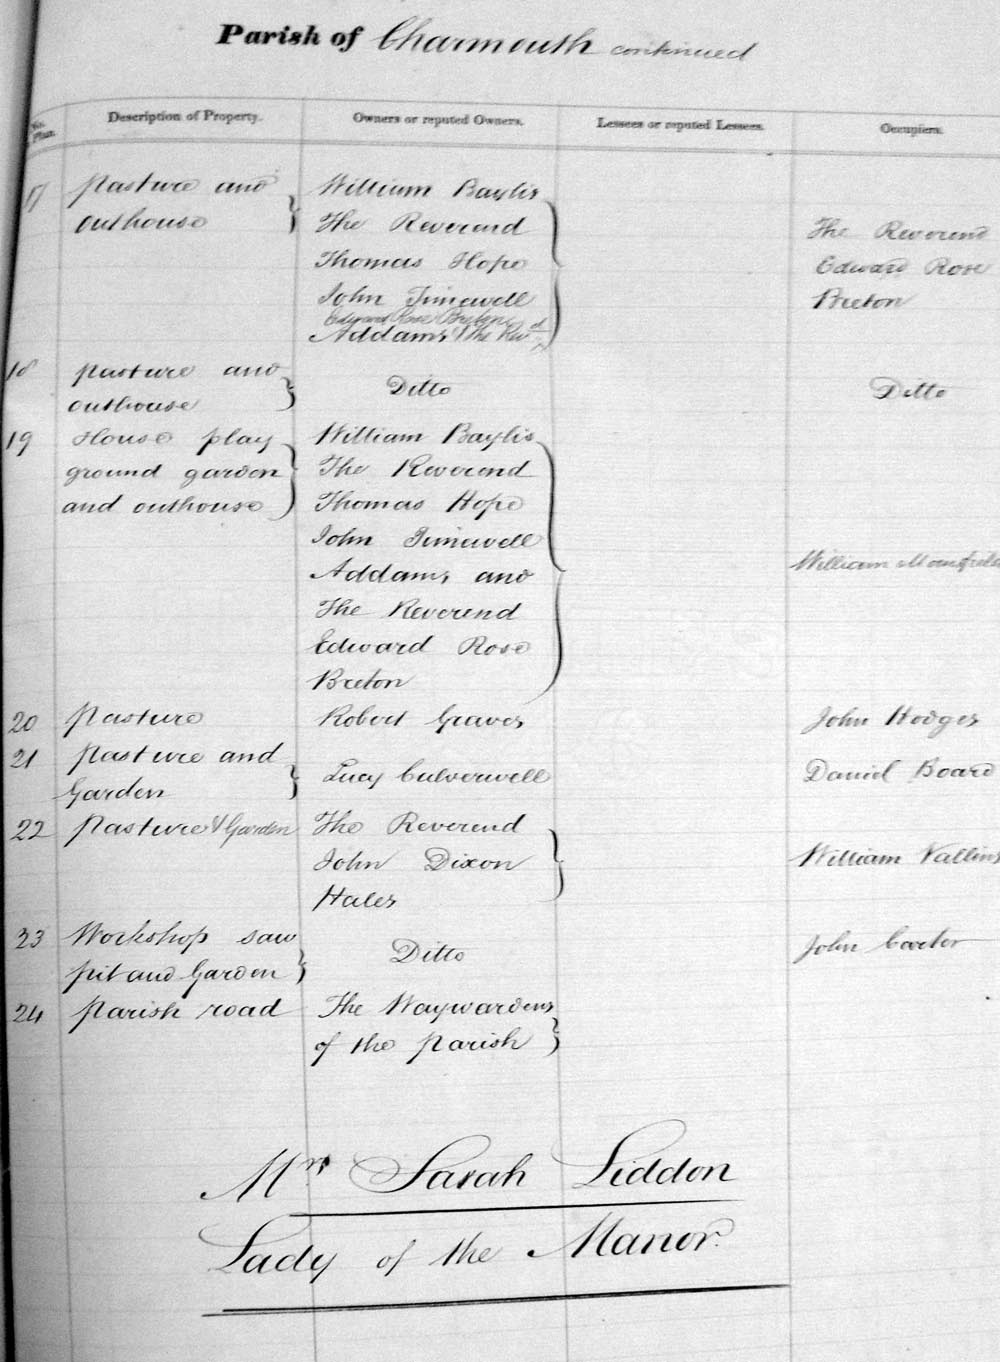 Parish of Charmouth continued
No. Plan Description of Property. Owners or reputed Owners. Lessees or reputed Lessees. Occupiers.
17 pasture and William Baylis
outhouse The Reverend The Reverend
Thomas Hope Edward Rose
John Timewell Breton
Edward Rose Breton
Addams & The Revd
18 pasture and
outhouse Ditto Ditto
19 House play William Baylis
ground garden The Reverend
and outhouse Thomas Hope
John Timewell
Addams and William Mansfield
The Reverend
Edward Rose
Breton
20 Pasture Robert Graves John Hodges
21 Pasture and
Garden Lucy Culverwell Daniel Board
22 Pasture & Garden The Reverend
John Dixon William Vallins
Hales
23 Workshop saw
pit and Garden Ditto John Carter
24 Parish road The Waywardens
of the parish
Mrs Sarah Liddon
Lady of the Manor.